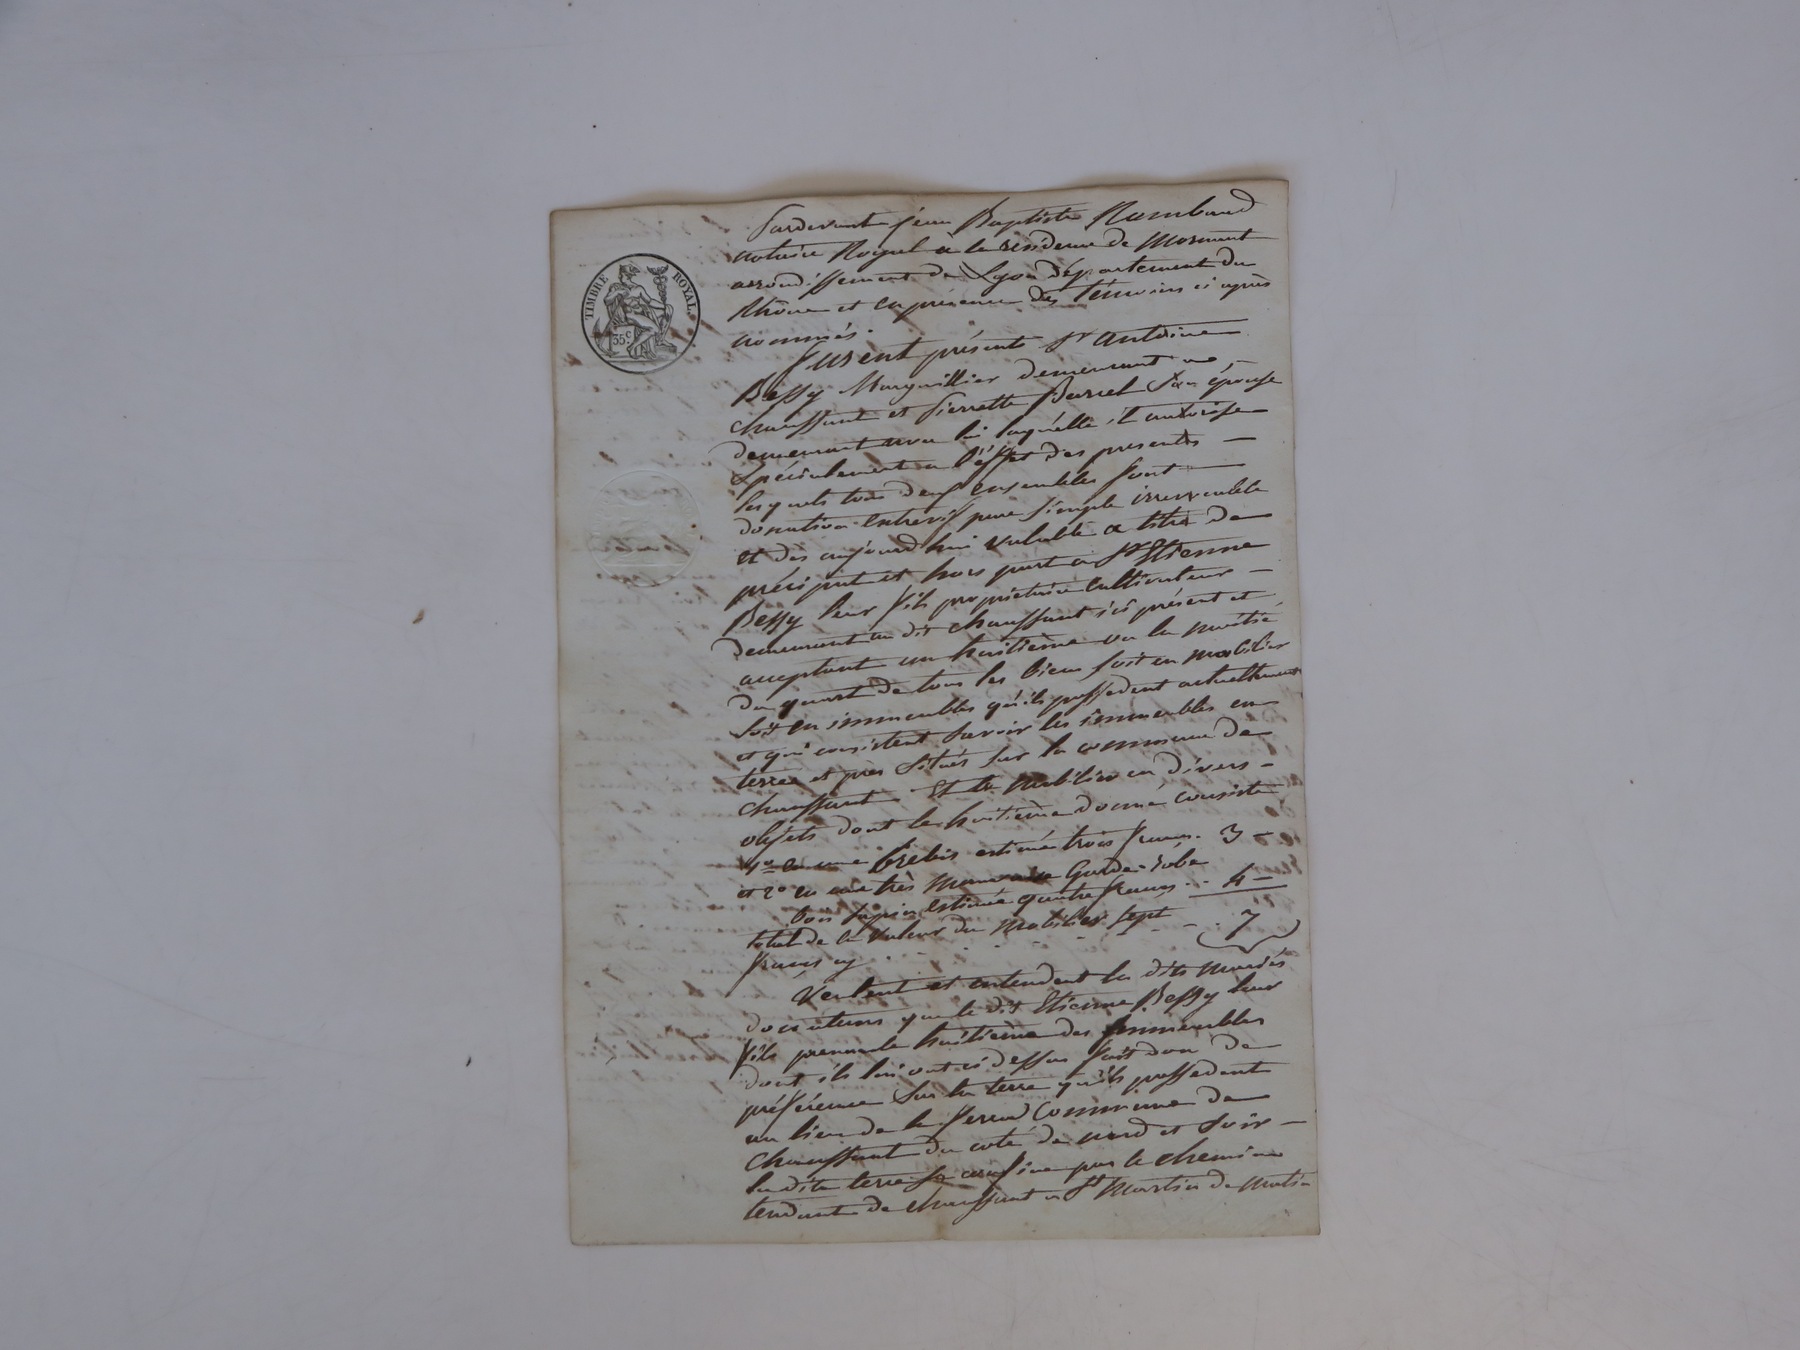 TIMBRE ROYAL
35 c
Pardevant Jean Baptiste Rambaud
notaire Royal à la résidence de Mornant
arrondissement de Lyon département du
Rhône et en présence des témoins ci après
nommés.
furent présents Sr antoine
Bessy Marguillier demeurant a
chaussant et Pierrette Barrel Son épouse
demeurant avec lui laquelle il autorise
Spécialement a l'éffet des presentes
lesquels tous deux ensembles font
donation entrevifs pure Simple irrevocable
et dès aujourd'hui valable a titre de
préciput et hors part a Sr Etienne
Bessy leur fils propriétaire cultivateur
demeurant au dit chaussant ici présent et
acceptant un huitième ou la moitié
du quart de tous les biens soit en mobilier
soit en immeubles qu'ils possedent actuellement
et qui consistent Savoir les immeubles en
terre et près Situés Sur la commune de
chaussant Et le mobilier en divers
objets dont le huitième donné consiste
1º en une brebis estimée trois francs. 3
et 2º en une très mauvaise Garde-robe
bois Sapin estimée quatre francs. 4
total de la valeur du mobilier sept
francs cy 7
Veulent et entendent les dits mariés
donateurs que le dit Etienne Bessy leur
fils prenne le huitième des immeubles
dont ils lui ont ci dessus fait don de
préférence Sur la terre qu'ils possedent
au lieu de la commune de
chaussant du coté de nord et Soir
la dite terre se confine par le chemin
tendant de chaussant a St Martin de